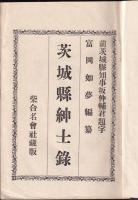 前茨城縣知事坂仲輔君題字
富岡如夢編纂
茨城縣紳士錄
榮合名會社藏版